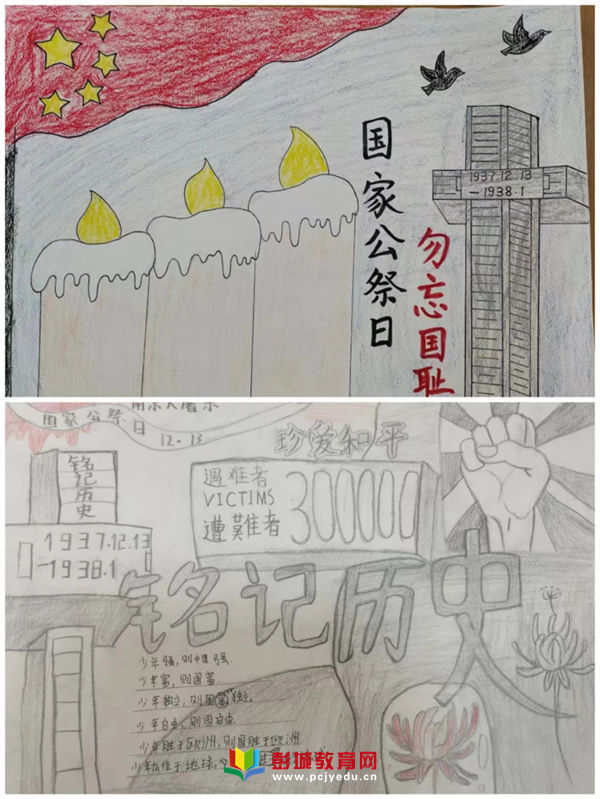 国家公祭日
勿忘国耻
1937.12.13
-1938.1
南京大屠杀
国家公祭日
12.13
珍爱和平
铭记历史
遇难者
VICTIMS
遭難者
300000
1937.12.13
-1938.1
铭记历史
少年强，则中国强.
少年富，则国富.
少年独立，则国独立。
少年自由，则国自由.
少年胜于欧洲，则国胜于欧洲
少年雄于地球，
彭城教育网
www.pcjyedu.cn